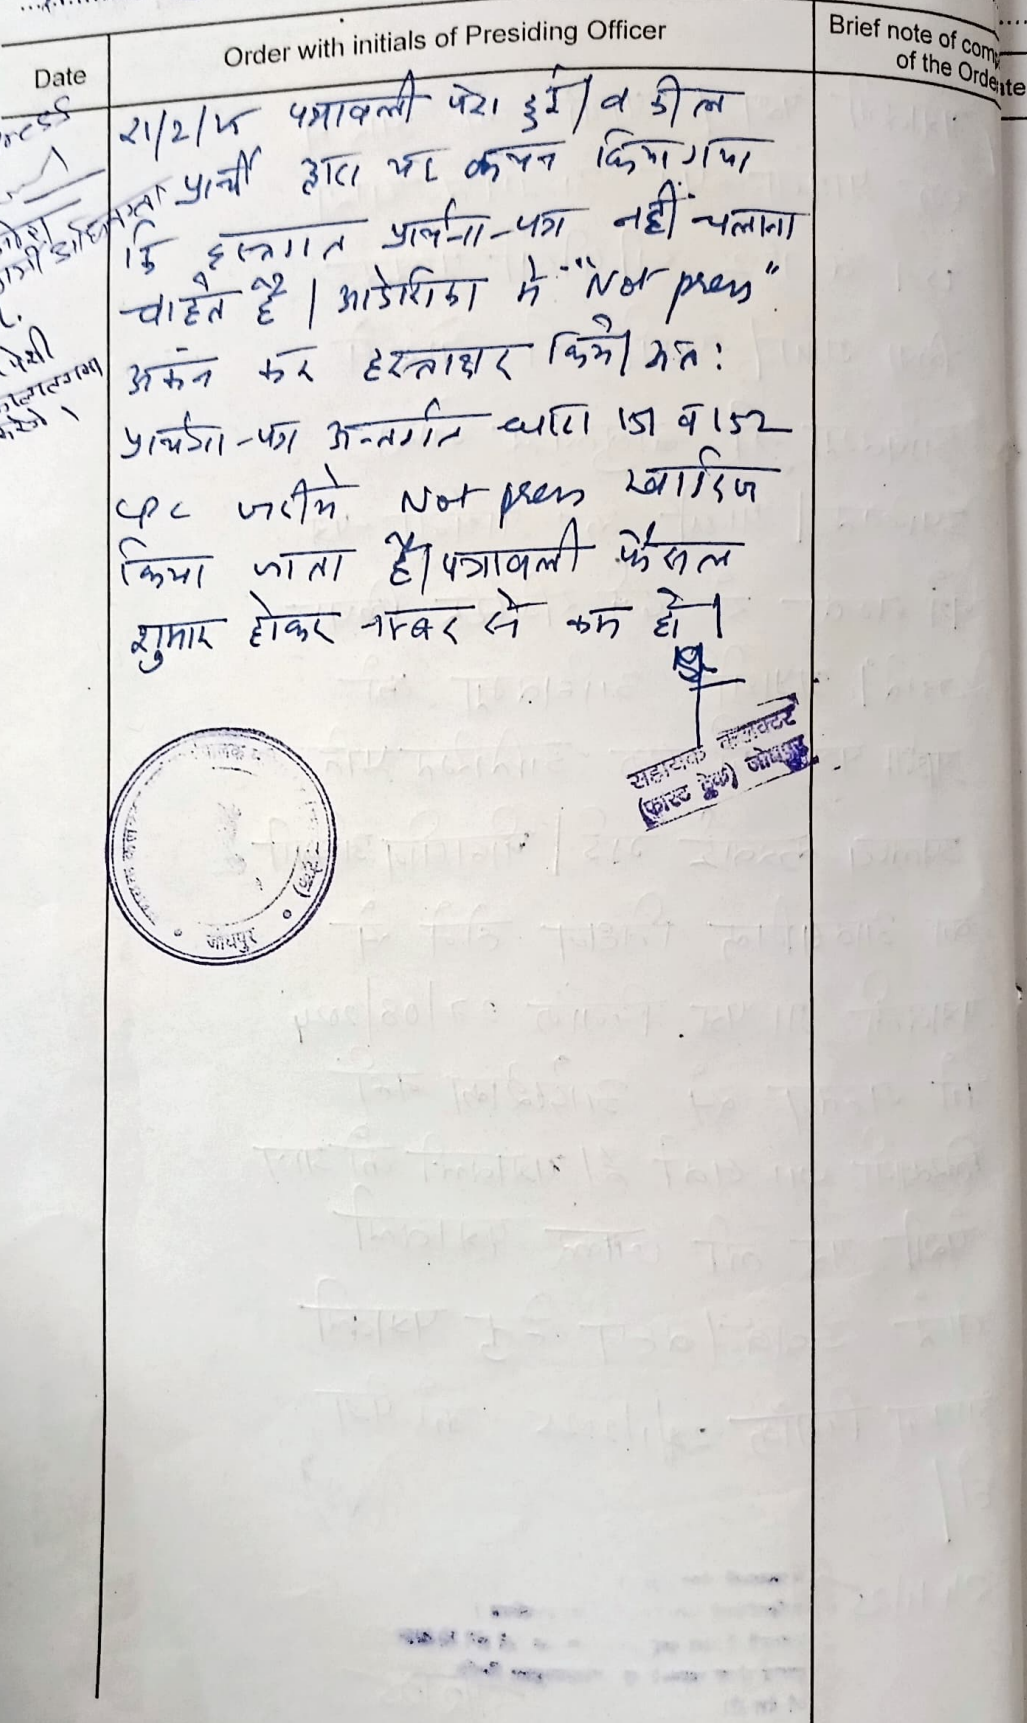 Date
Order with initials of Presiding Officer
Brief note of com
of the Orde
पत्रावली पेश हुई। वकील
प्रार्थी द्वारा यह कथन किया गया
कि हस्तगत प्रार्थना-पत्र नहीं चलाना
चाहते है। आदेशिका मे "Not press"
अकंन कर हस्ताक्षर किये। अतः
प्रार्थना-पत्र अन्तर्गत धारा 151 व 152
CPC जरीये Not press खारिज
किया जाता है। पत्रावली फैसल
शुमार होकर नम्बर से कम हो।
सहायक कलक्टर
(फास्ट ट्रेक) जोधपुर
जोधपुर